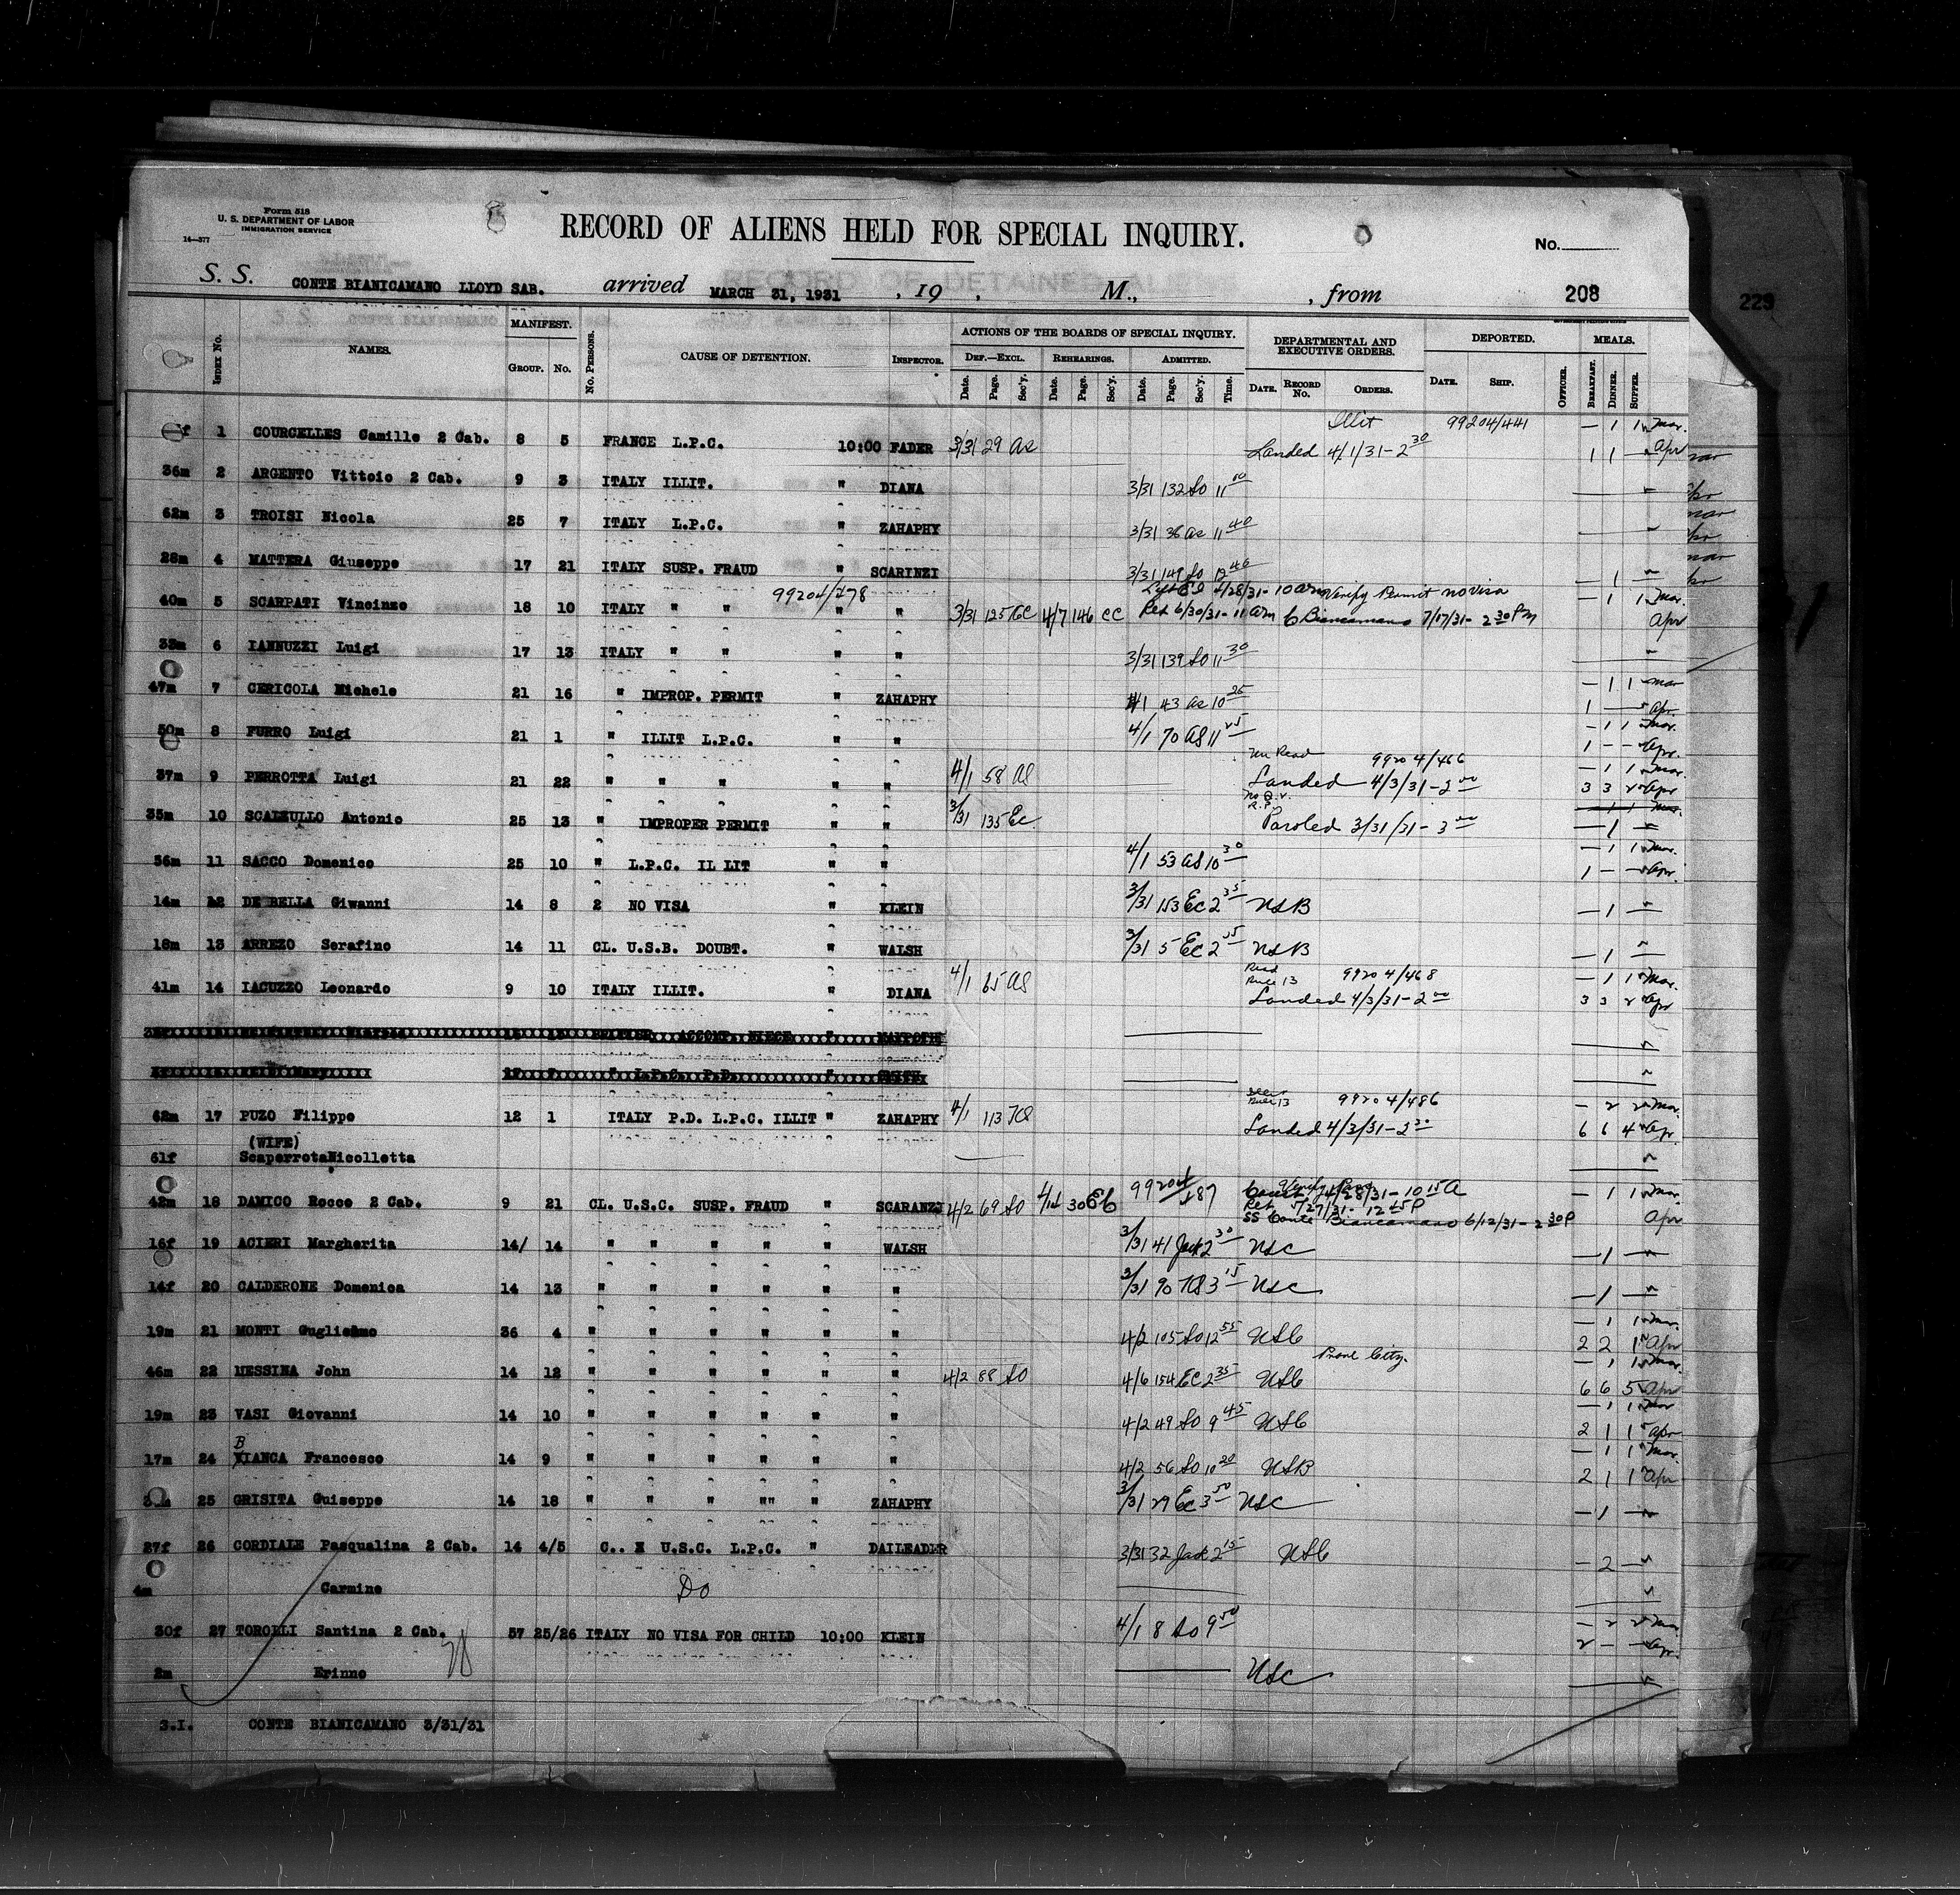 Form 518
U. S. DEPARTMENT OF LABOR
IMMIGRATION SERVICE
14—377
RECORD OF ALIENS HELD FOR SPECIAL INQUIRY.
No.
S. S. CONTE BIANICAMANO LLOYD SAB. arrived MARCH 31, 1931 , 19 , M., , from 208
229
INDEX No. NAMES. MANIFEST. GROUP. No. No. PERSONS. CAUSE OF DETENTION. INSPECTOR. ACTIONS OF THE BOARDS OF SPECIAL INQUIRY. DEPARTMENTAL AND EXECUTIVE ORDERS. DEPORTED. MEALS.
DEF.—EXCL. REHEARINGS. ADMITTED.
Date. Page. Sec'y. Date. Page. Sec'y. Date. Page. Sec'y. Time. DATE. RECORD No. ORDERS. DATE. SHIP. OFFICER. BREAKFAST. DINNER. SUPPER.
Illit 99204/441 — 1 1 Mar.
f 1 COURCELLES Camille 2 Cab. 8 5 FRANCE L.P.C. 10:00 FADER 3/31 29 as Landed 4/1/31 - 2 30 1 1 — Apr
36m 2 ARGENTO Vittoio 2 Cab. 9 3 ITALY ILLIT. " DIANA 3/31 132 So 11 00
62m 3 TROISI Nicola 25 7 ITALY L.P.C. " ZAHAPHY 3/31 36 as 11 40
28m 4 MATTERA Giuseppe 17 21 ITALY SUSP. FRAUD " SCARINZI 3/31 149 So 12 46 — 1 —
99204/278 4/28/31 - 10 am Verify Permit no visa — 1 1 Mar.
40m 5 SCARPATI Vincinzo 18 10 ITALY " " " " 3/31 125 4/7 146 CC Ret 6/30/31 - 11 am C Biancamano 7/17/31 - 2 30 PM Apr
33m 6 IANNUZZI Luigi 17 13 ITALY " " " " 3/31 139 So 11 30
47m 7 CERICOLA Michele 21 16 " IMPROP. PERMIT " ZAHAPHY 4/1 43 as 10 25 — 1 1 Mar
1 — Apr.
50m 8 FURRO Luigi 21 1 " ILLIT L.P.C. " " 4/1 70 as 11 25 — 1 1 Mar.
1 — — Apr.
Read 99204/466 — 1 1 Mar.
37m 9 PERROTTA Luigi 21 22 " " " " " 4/1 58 as Landed 4/3/31 - 2 00 3 3 2 Apr
35m 10 SCALZULLO Antonio 25 13 " IMPROPER PERMIT " " 3/31 135 Ec Paroled 3/31/31 - 3 00 — 1 —
56m 11 SACCO Domenico 25 10 " L.P.C. IL LIT " " 4/1 53 as 10 30 — 1 1 Mar.
1 — — Apr.
14m 12 DE BELLA Giwanni 14 8 2 NO VISA " KLEIN 3/31 153 Ec 2 35 USB — 1 —
18m 13 ARREZO Serafino 14 11 CL. U.S.B. DOUBT. " WALSH 3/31 5 Ec 2 55 USB — 1 —
Read Rule 13 99204/468 — 1 1 Mar.
41m 14 IACUZZO Leonardo 9 10 ITALY ILLIT. " DIANA 4/1 65 as Landed 4/3/31 - 2 00 3 3 2 Apr
Rule 13 99204/486 — 2 2 Mar.
62m 17 PUZO Filippo 12 1 ITALY P.D. L.P.C. ILLIT " ZAHAPHY 4/1 113 Landed 4/3/31 - 2 30 6 6 4 Apr.
(WIFE)
61f ScaperrotaNicolletta
42m 18 DAMICO Rocco 2 Cab. 9 21 CL. U.S.C. SUSP. FRAUD " SCARANZI 4/2 69 So 4/14 30 Ec 99204/187 4/28/31 - 10 15 A — 1 1 Mar
Ret. 5/27/31 - 12 45 P Apr
SS Conte Biancamano 6/12/31 - 2 30 P
16f 19 ACIERI Margherita 14/ 14 " " " " " WALSH 3/31 41 Jack 2 30 USC — 1 —
14f 20 CALDERONE Domenica 14 13 " " " " " " 3/31 90 3 15 USC — 1 —
19m 21 MONTI Guglielmo 36 4 " " " " " " 4/2 105 So 12 55 USC — 1 1 Mar.
2 2 1 Apr
46m 22 MESSINA John 14 12 " " " " " " 4/2 88 So 4/6 154 Ec 2 35 USC — 1 1 Mar.
6 6 5 Apr
19m 23 VASI Giovanni 14 10 " " " " " " 4/2 49 So 9 45 USC — 1 1 Mar
2 1 1 Apr
B
17m 24 IANCA Francesco 14 9 " " " " " " 4/2 56 So 10 20 USB — 1 1 Mar.
2 1 1 Apr
25 GRISITA Guiseppe 14 18 " " " "" " ZAHAPHY 3/31 29 Ec 3 50 USC — 1 —
27f 26 CORDIALE Pasqualina 2 Cab. 14 4/5 C.. X U.S.C. L.P.C. " DAILEADER 3/31 32 Jack 2 15 USC — 2 —
4m Carmine Do
30f 27 TORORLI Santina 2 Cab. 57 25/26 ITALY NO VISA FOR CHILD 10:00 KLEIN 4/1 8 So 9 50 — 2 2 Mar
2 — — Apr.
2m Erinno USC
S.I. CONTE BIANICAMANO 3/31/31